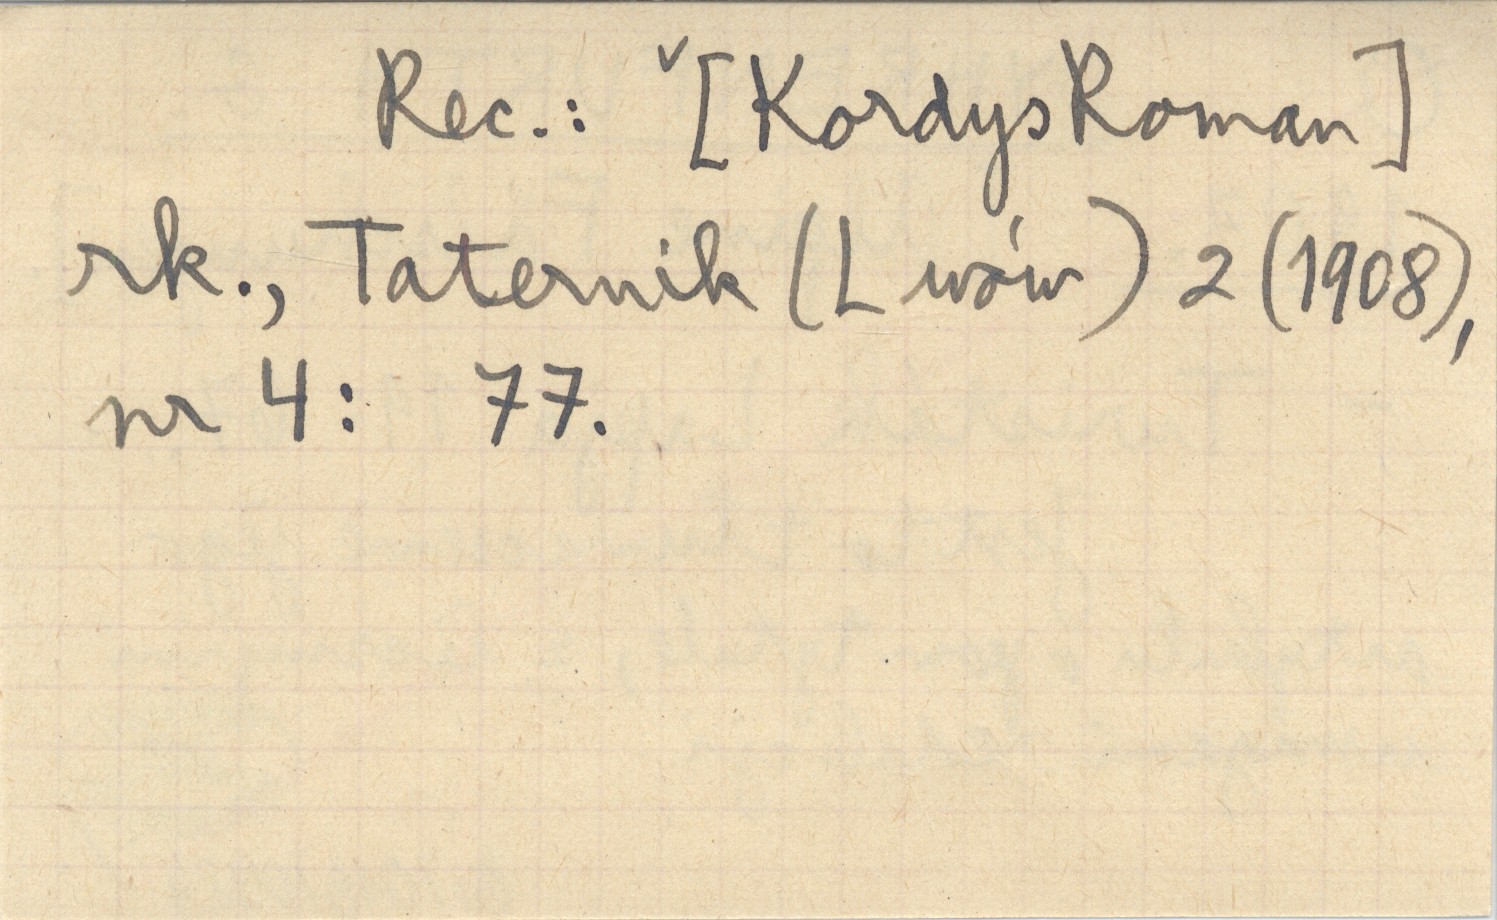 Rec.: ˅[Kordys Roman]
rk., Taternik (Lwów) 2 (1908),
nr 4: 77.